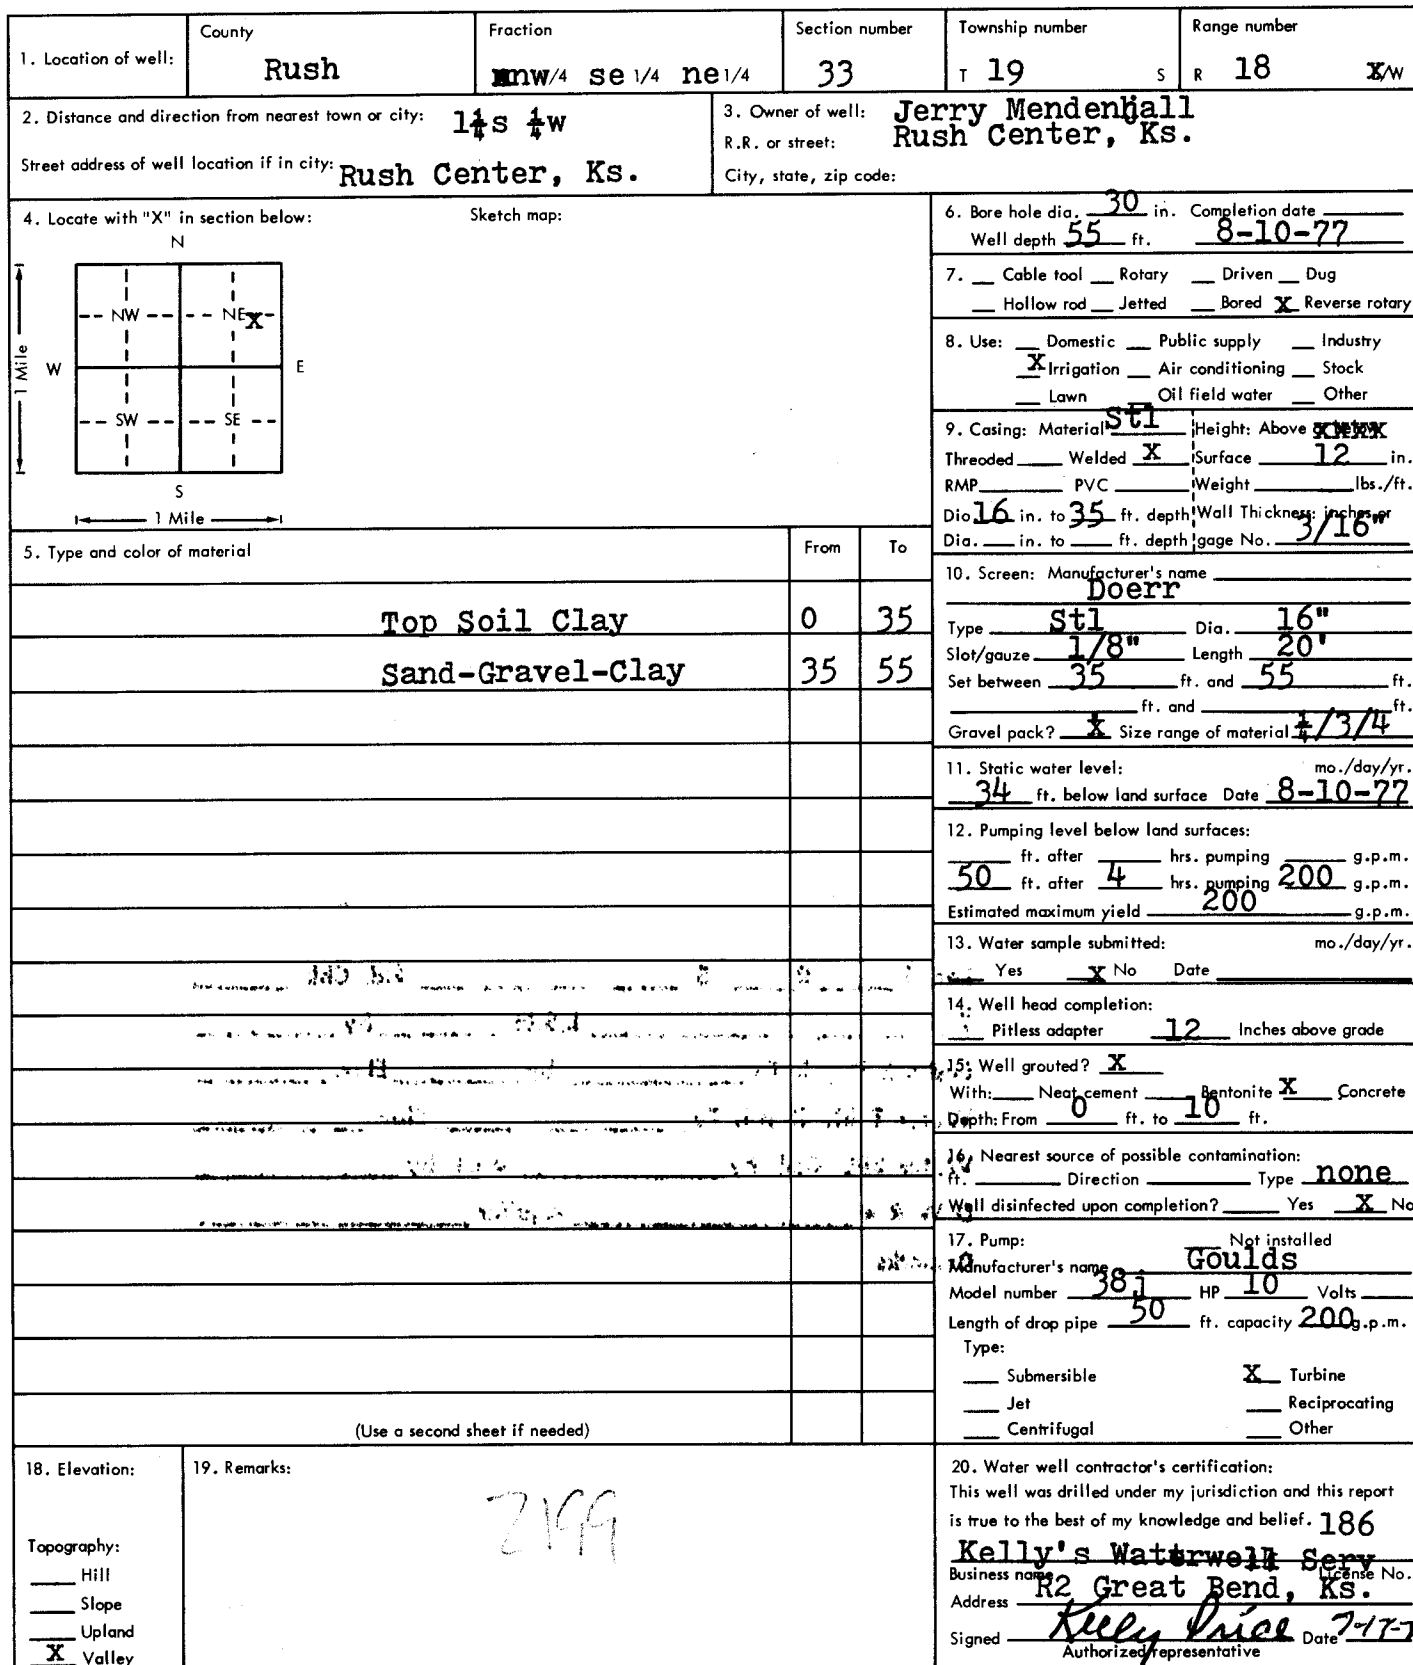 1. Location of well:
County
Rush
Fraction
nw/4 se 1/4 ne 1/4
Section number
33
Township number
T 19 S
Range number
R 18 X/W
2. Distance and direction from nearest town or city: 1¼s ¼w
Street address of well location if in city: Rush Center, Ks.
3. Owner of well: Jerry Mendenhall
R.R. or street: Rush Center, Ks.
City, state, zip code:
4. Locate with "X" in section below:
Sketch map:
N
NW NE X
W E
1 Mile
SW SE
S
1 Mile
5. Type and color of material From To
Top Soil Clay 0 35
Sand-Gravel-Clay 35 55
(Use a second sheet if needed)
6. Bore hole dia. 30 in. Completion date
Well depth 55 ft. 8-10-77
7. Cable tool Rotary Driven Dug
Hollow rod Jetted Bored X Reverse rotary
8. Use: Domestic Public supply Industry
X Irrigation Air conditioning Stock
Lawn Oil field water Other
9. Casing: Material Stl Height: Above or below
Threaded Welded X Surface 12 in.
RMP PVC Weight lbs./ft.
Dia 16 in. to 35 ft. depth Wall Thickness: inches or
Dia. in. to ft. depth gage No. 3/16"
10. Screen: Manufacturer's name
Doerr
Type Stl Dia. 16"
Slot/gauze 1/8" Length 20'
Set between 35 ft. and 55 ft.
ft. and ft.
Gravel pack? X Size range of material ¼/3/4
11. Static water level: mo./day/yr.
34 ft. below land surface Date 8-10-77
12. Pumping level below land surfaces:
ft. after hrs. pumping g.p.m.
50 ft. after 4 hrs. pumping 200 g.p.m.
Estimated maximum yield 200 g.p.m.
13. Water sample submitted: mo./day/yr.
Yes X No Date
14. Well head completion:
Pitless adapter 12 Inches above grade
15. Well grouted? X
With: Neat cement Bentonite X Concrete
Depth: From 0 ft. to 10 ft.
16. Nearest source of possible contamination:
ft. Direction Type none
Well disinfected upon completion? Yes X No
17. Pump: Not installed
Manufacturer's name Goulds
Model number 38j HP 10 Volts
Length of drop pipe 50 ft. capacity 200 g.p.m.
Type:
Submersible X Turbine
Jet Reciprocating
Centrifugal Other
18. Elevation:
Topography:
Hill
Slope
Upland
X Valley
19. Remarks:
2199
20. Water well contractor's certification:
This well was drilled under my jurisdiction and this report
is true to the best of my knowledge and belief. 186
Kelly's Waterwell Serv
Business name License No.
Address R2 Great Bend, Ks.
Signed Kelly Price Date 7-17-7
Authorized representative